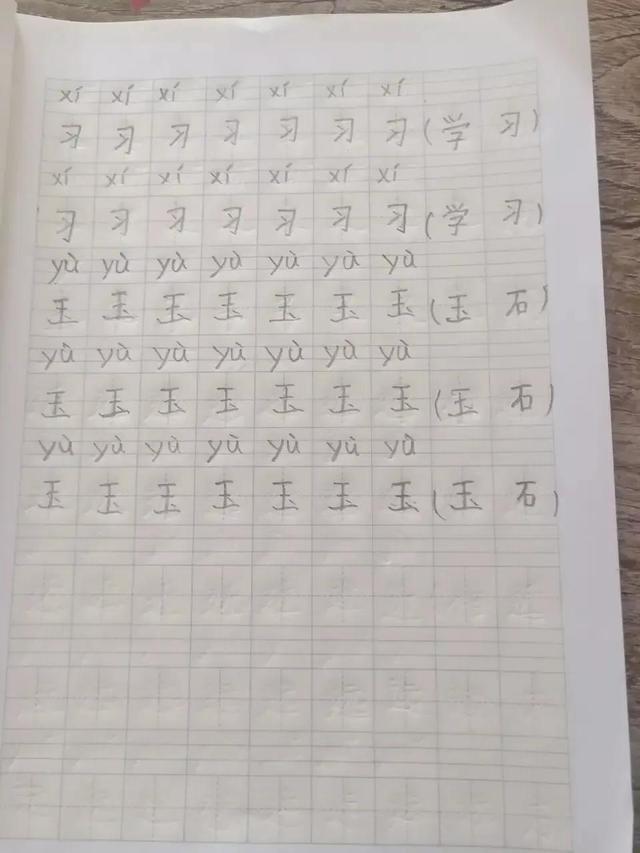 xí xí xí xí xí xí xí
习 习 习 习 习 习 习 (学 习)
xí xí xí xí xí xí xí
习 习 习 习 习 习 习 (学 习)
yù yù yù yù yù yù yù
玉 玉 玉 玉 玉 玉 玉 (玉 石)
yù yù yù yù yù yù yù
玉 玉 玉 玉 玉 玉 玉 (玉 石)
yù yù yù yù yù yù yù
玉 玉 玉 玉 玉 玉 玉 (玉 石)